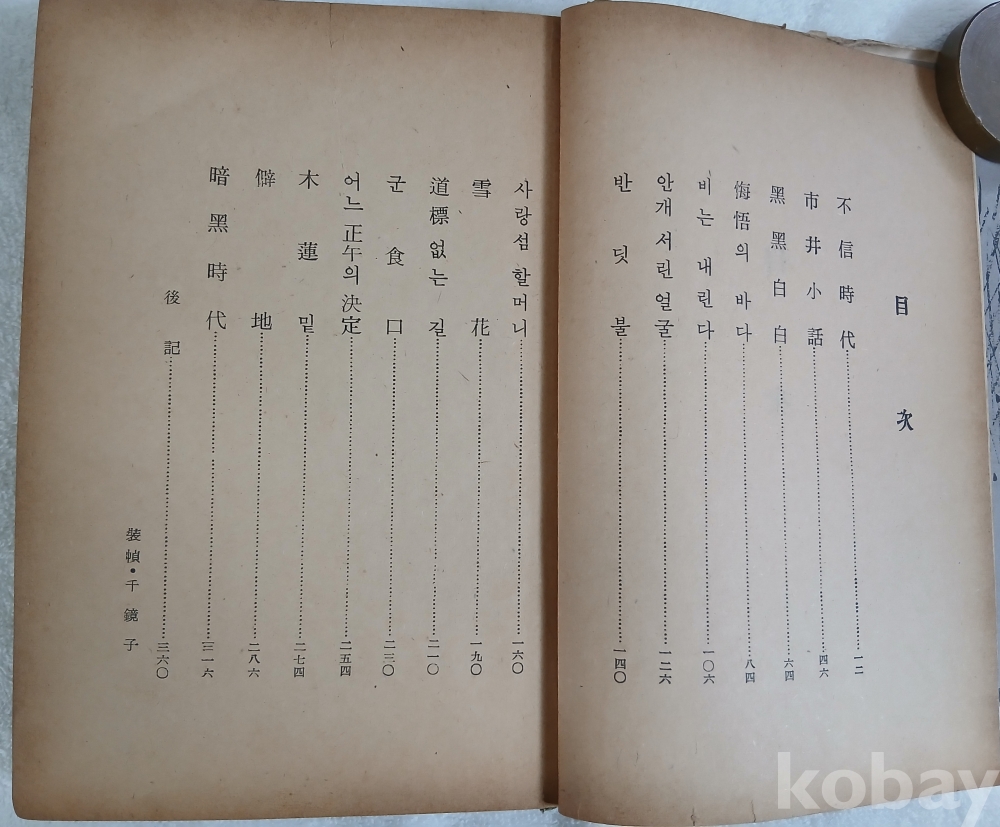 目次
不信時代 一二
市井小話 四六
黑黑白白 六四
悔悟의 바다 八四
비는 내린다 一〇六
안개 서린 얼굴 一二六
반딧불 一四〇
사랑섬 할머니 一六〇
雪花 一九〇
道標 없는 길 二一〇
군食口 二三〇
어느 正午의 決定 二五四
木蓮 밑 二七四
僻地 二八六
暗黑時代 三一六
後記 三六〇
裝幀・千鏡子
kobay